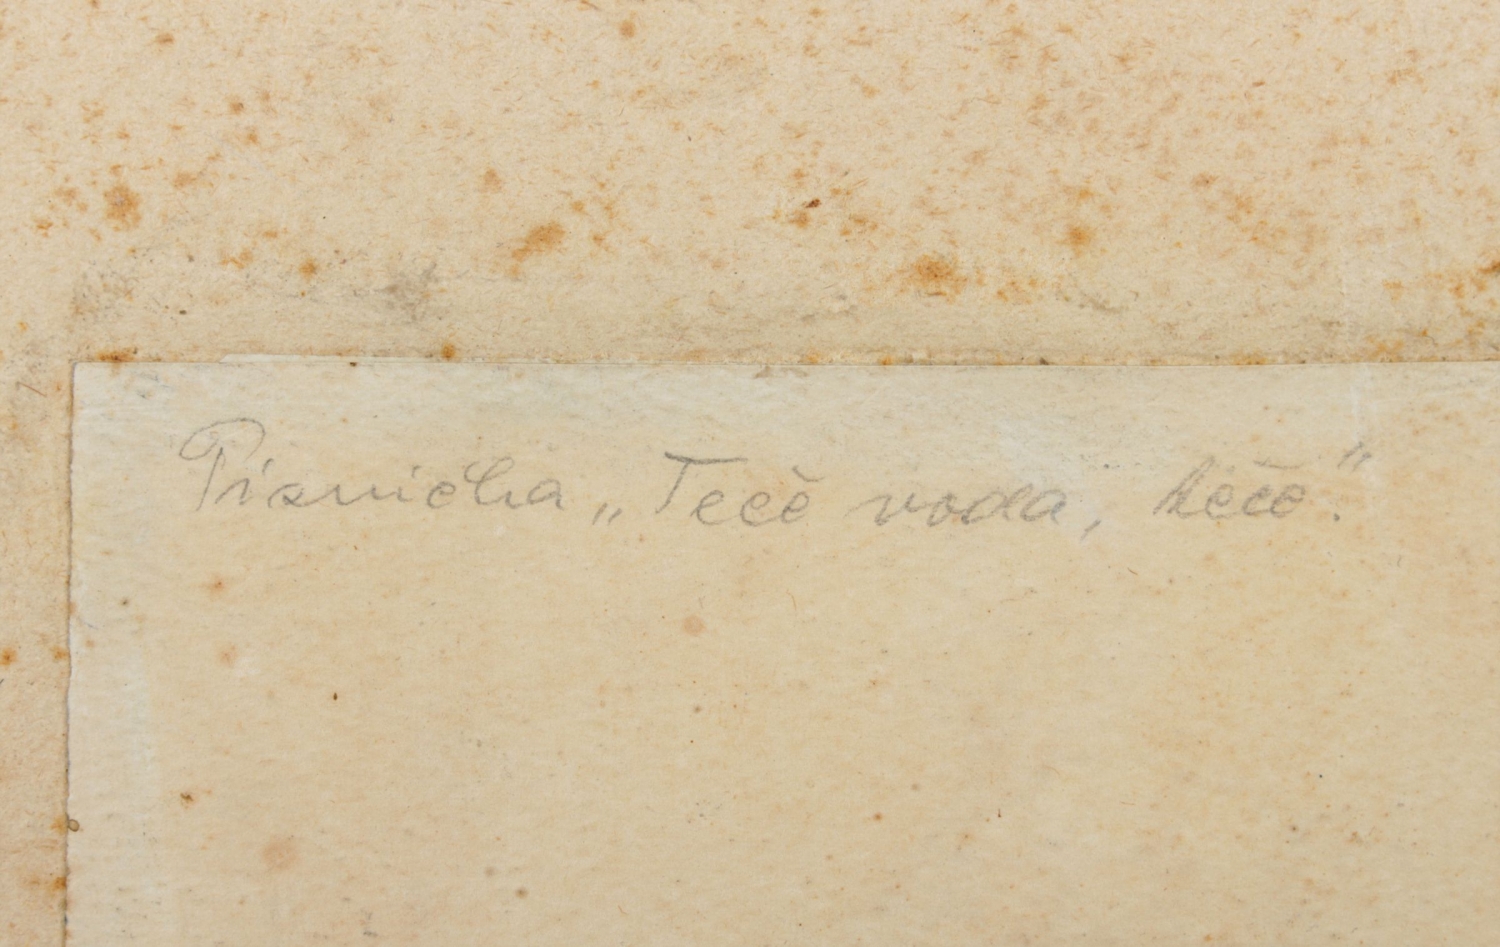 Písnička „Teče voda, teče."